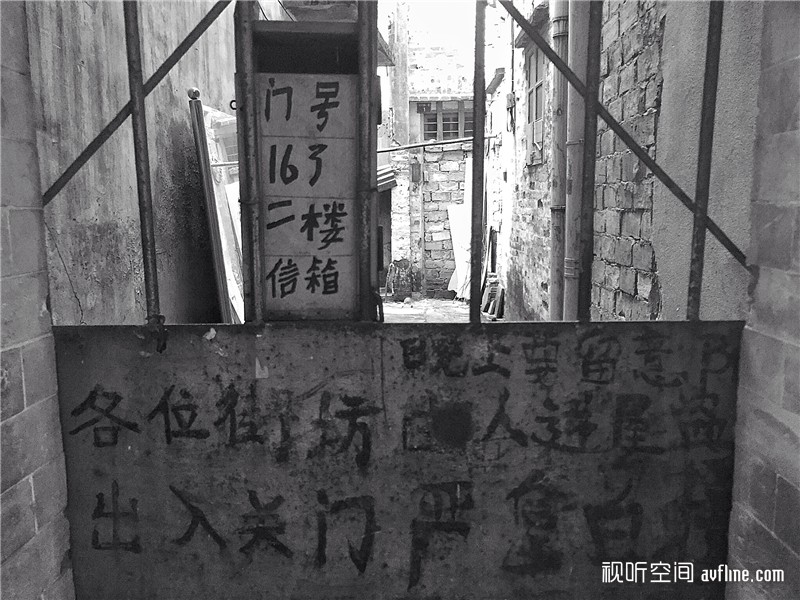 门号
16了
二楼
信箱
晚上要留意
各位街坊 人进屋盗
出入关门严拿白撞
视听空间 avfline.com